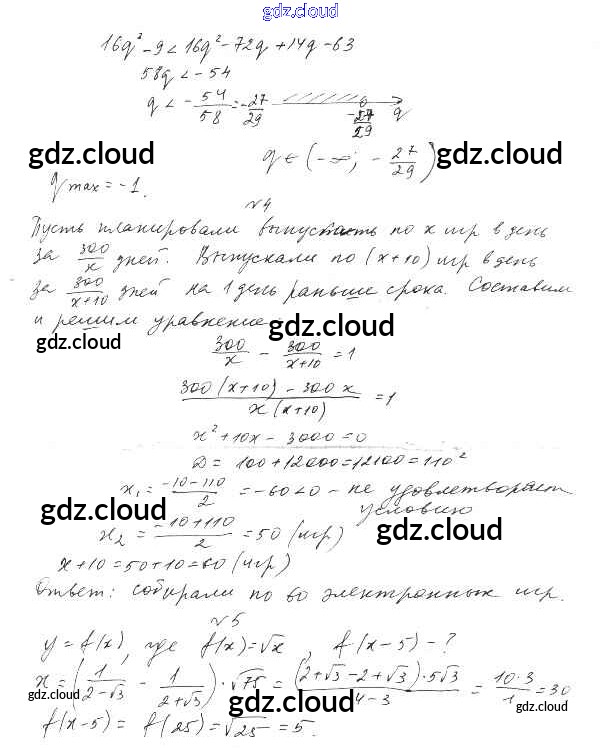 gdz.cloud
16q² - 9 < 16q² - 72q + 14q - 63
58q < -54
q < -54/58 = -27/29
-27/29 q
gdz.cloud q ∈ (-∞; -27/29) gdz.cloud
q max = -1.
№4
Пусть планировали выпускать по x игр в день
за 300/x дней. Выпускали по (x+10) игр в день
за 300/(x+10) дней на 1 день раньше срока. Составим
и решим уравнение:
gdz.cloud gdz.cloud
300/x - 300/(x+10) = 1
(300(x+10) - 300x)/(x(x+10)) = 1
x² + 10x - 3000 = 0
D = 100 + 12000 = 12100 = 110²
x₁ = (-10-110)/2 = -60 < 0 - не удовлетворяет
условию
gdz.cloud gdz.cloud
x₂ = (-10+110)/2 = 50 (игр)
x+10 = 50+10 = 60 (игр)
Ответ: собирали по 60 электронных игр.
№5
y = f(x), где f(x) = √x, f(x-5) - ?
x = (1/(2-√3) - 1/(2+√3)) · √75 = ((2+√3-2+√3)·5√3)/(4-3) = (10·3)/1 = 30
gdz.cloud gdz.cloud gdz.cloud
f(x-5) = f(25) = √25 = 5.